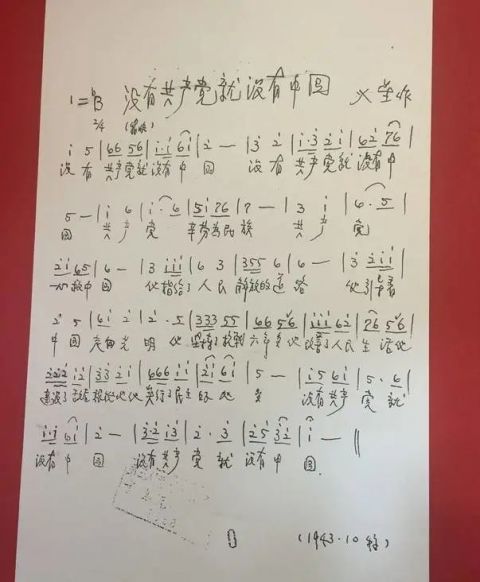 1=♭B 没有共产党就没有中国 火星作
2/4
i 5 | 66 56 | i·i 6i | 2 — | 3 2 | i·3 2i | 62 76 |
没有 共产党就没有中 国 没有 共产党就 没有中
5 — | i 6 | i· 6 | 5i 76 | 7 — | 3 i | 6· 5 |
国 共产 党 辛劳为民族 共产 党
2i 65 | 6 — | 3 iii | 6 3 | 355 6 | 6 — | 3 2ii |
一心救中国 他指给了人民 解放的道路 他引导着
2 5 | 6i 2 | 2 · 5 | 333 55 | 66 56 | iii 62 | 76 56 |
中国走向光 明 他 坚持了抗战六年多他 改善了人民生活他
222 i2 | 332 i | 666 ii | 2i 6i | 5 — | i5 6i | 5· 6 |
建设了敌后根据地他 实行了民主的好 处 没有共产 党 就
i·i 6i | 2 — | 3·2 i3 | 2 · 3 | 25 32 | i — ||
没有中 国 没有共产 党 就 没有中 国
(1943·10